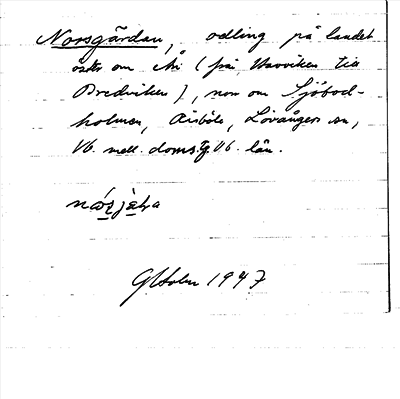 Norsgärdan, odling på landet
öster om Ån (från Uavviken till
Bredviken), norr om Sjöbod-
holmen, Risböle, Lövånger sn,
Vb. mell. doms. Vb. län.
G Holm 1947